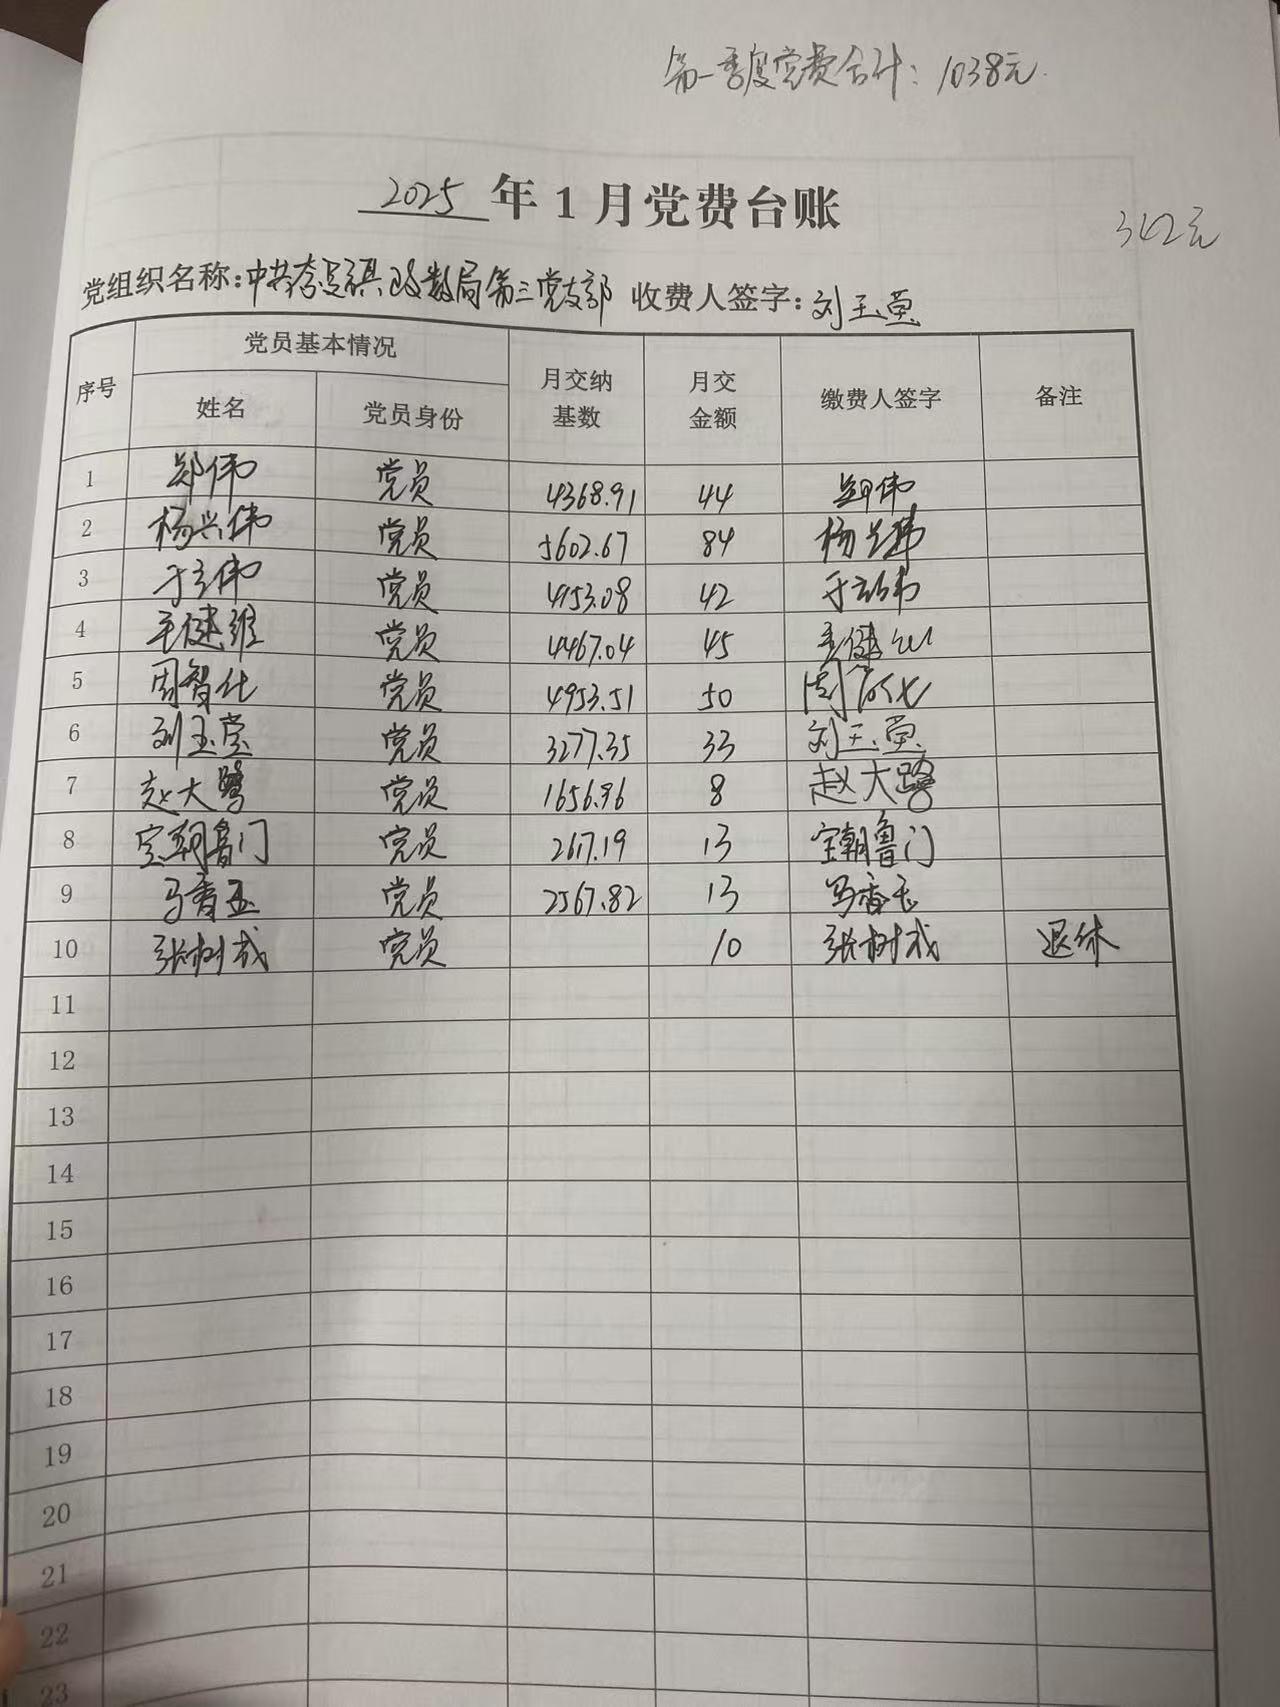 第一季度党费合计：1038元
2025年1月党费台账
342元
党组织名称：中共奈曼旗政数局第三党支部 收费人签字：刘玉莹
序号 党员基本情况 月交纳基数 月交金额 缴费人签字 备注
姓名 党员身份
1 郑伟 党员 4368.91 44 郑伟
2 杨兴伟 党员 5602.67 84 杨兴伟
3 于立伟 党员 4153.08 42 于立伟
4 党员 4467.04 45
5 周智仕 党员 4953.51 50
6 刘玉莹 党员 3277.35 33 刘玉莹
7 赵大鹭 党员 1656.96 8 赵大鹭
8 宝朝鲁门 党员 2617.19 13 宝朝鲁门
9 马香玉 党员 2567.82 13 马香玉
10 张树成 党员 10 张树成 退休
11
12
13
14
15
16
17
18
19
20
21
22
23